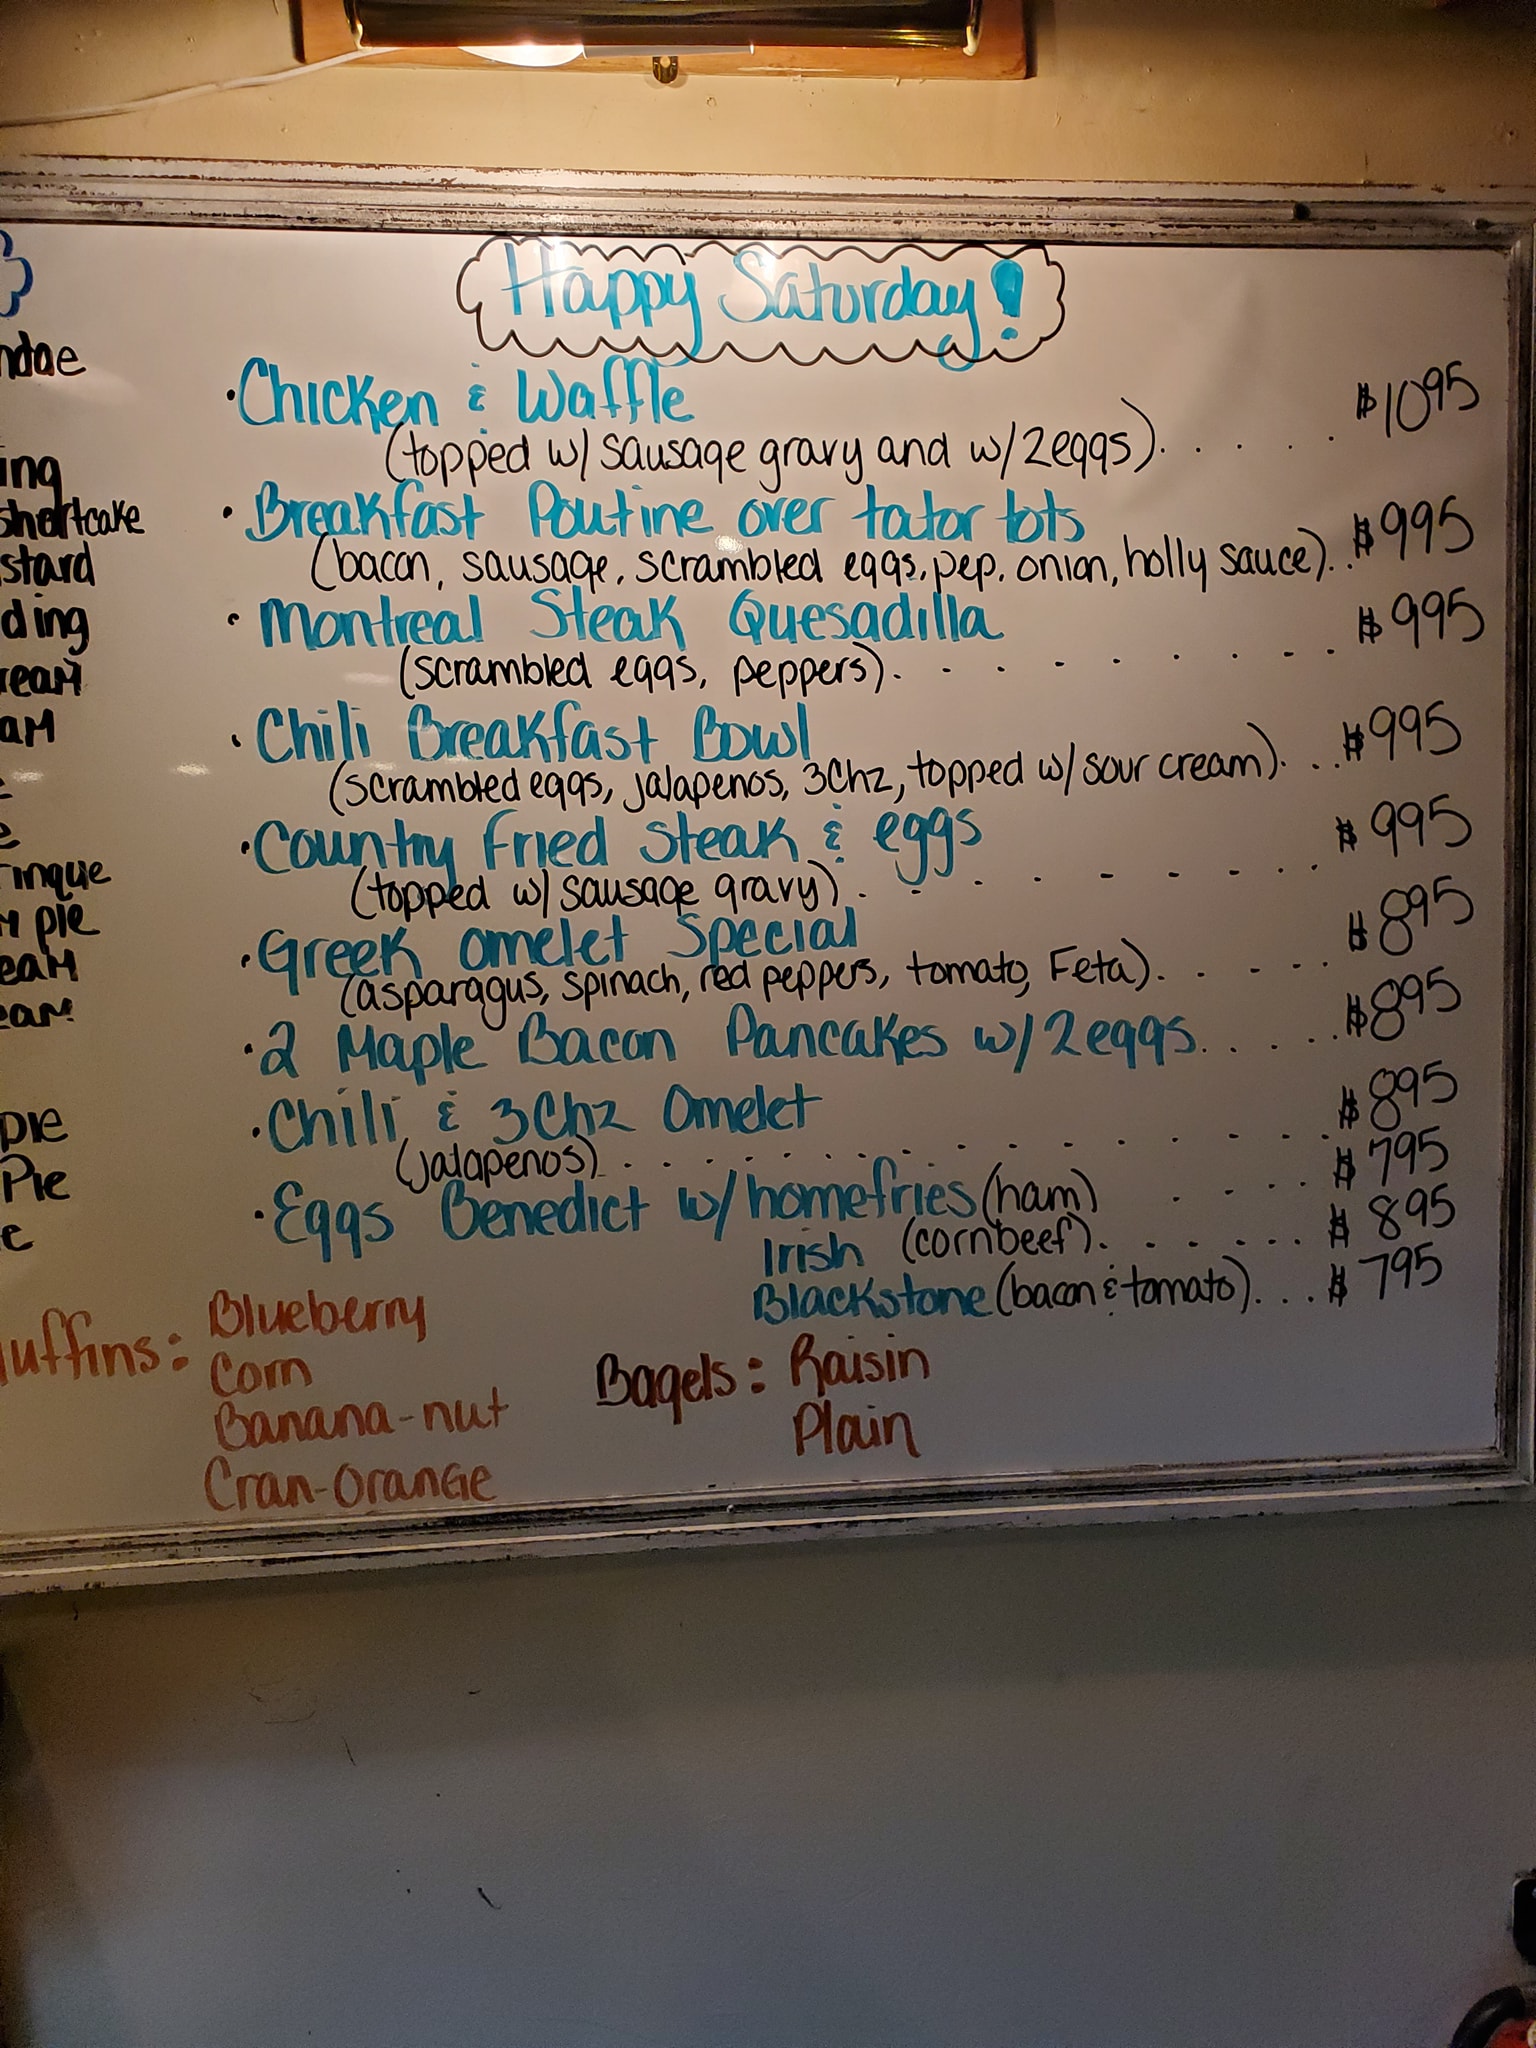 Happy Saturday!
ndae
• Chicken & Waffle
(topped w/ sausage gravy and w/ 2 eggs)..... $10 95
ing
shortcake
• Breakfast Poutine over tator tots
(bacon, sausage, scrambled eggs, pep, onion, holly sauce)..$9 95
stard
ding
• Montreal Steak Quesadilla
(scrambled eggs, peppers)......... $9 95
ream
am
• Chili Breakfast Bowl
(scrambled eggs, jalapenos, 3 Chz, topped w/ sour cream)...$9 95
e
e
• Country Fried Steak & eggs
(topped w/ sausage gravy)......... $9 95
ringue
m pie
• Greek Omelet Special
(asparagus, spinach, red peppers, tomato, Feta)..... $8 95
eam
eam
• 2 Maple Bacon Pancakes w/ 2 eggs..... $8 95
pie
• Chili & 3 Chz Omelet
(jalapenos).............. $8 95
Pie
e
• Eggs Benedict w/ homefries (ham) .... $7 95
Irish (cornbeef)...... $8 95
Blackstone (bacon & tomato)... $7 95
uffins: Blueberry
Corn
Banana-nut
Cran-Orange
Bagels: Raisin
Plain